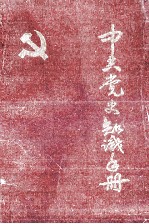 中共党史知识手册